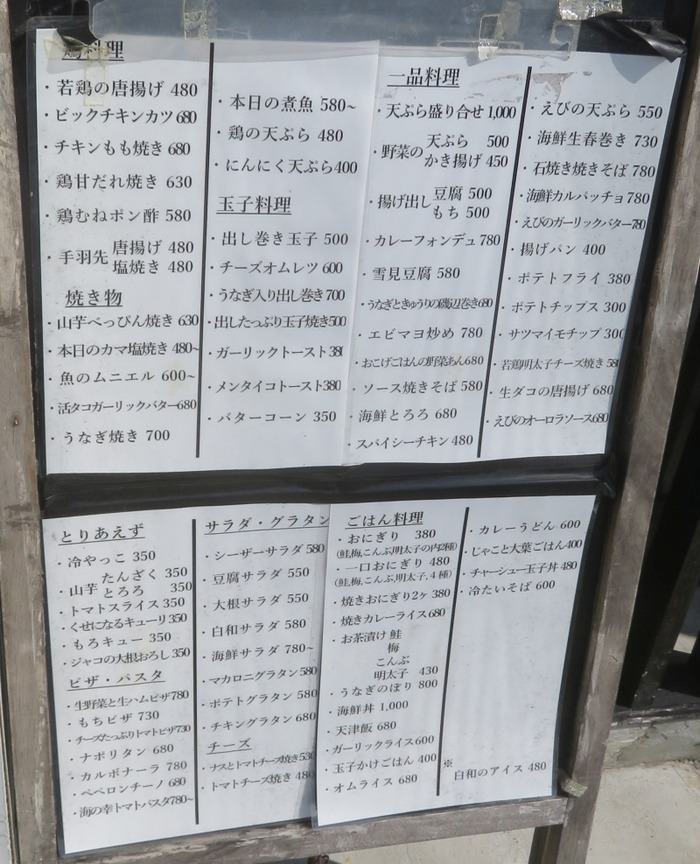 鶏料理
・若鶏の唐揚げ 480
・ビックチキンカツ680
・チキンもも焼き 680
・鶏甘だれ焼き 630
・鶏むねポン酢 580
・手羽先 唐揚げ 480
塩焼き 480
焼き物
・山芋べっぴん焼き 630
・本日のカマ塩焼き 480~
・魚のムニエル 600~
・活タコガーリックバター680
・うなぎ焼き 700
・本日の煮魚 580~
・鶏の天ぷら 480
・にんにく天ぷら400
玉子料理
・出し巻き玉子 500
・チーズオムレツ 600
・うなぎ入り出し巻き700
・出したっぷり玉子焼き500
・ガーリックトースト380
・メンタイコトースト380
・バターコーン 350
一品料理
・天ぷら盛り合せ 1,000
・野菜の 天ぷら 500
かき揚げ 450
・揚げ出し 豆腐 500
もち 500
・カレーフォンデュ780
・雪見豆腐 580
・うなぎときゅうりの磯辺巻き680
・エビマヨ炒め 780
・おこげごはんの野菜あん680
・ソース焼きそば 580
・海鮮とろろ 680
・スパイシーチキン 480
・えびの天ぷら 550
・海鮮生春巻き 730
・石焼き焼きそば 780
・海鮮カルパッチョ 780
・えびのガーリックバター780
・揚げパン 400
・ポテトフライ 380
・ポテトチップス 300
・サツマイモチップ 300
・若鶏明太子チーズ焼き 580
・生ダコの唐揚げ 680
・えびのオーロラソース680
とりあえず
・冷やっこ 350
・山芋 たんざく 350
とろろ 350
・トマトスライス 350
・くせになるキューリ350
・もろキュー 350
・ジャコの大根おろし 350
ピザ・パスタ
・生野菜と生ハムピザ780
・もちピザ 730
・チーズたっぷりトマトピザ730
・ナポリタン 680
・カルボナーラ 780
・ペペロンチーノ 680
・海の幸トマトパスタ780~
サラダ・グラタン
・シーザーサラダ 580
・豆腐サラダ 550
・大根サラダ 550
・白和サラダ 580
・海鮮サラダ 780~
・マカロニグラタン 580
・ポテトグラタン 580
・チキングラタン 680
チーズ
・ナスとトマトチーズ焼き530
・トマトチーズ焼き 480
ごはん料理
・おにぎり 380
(鮭,梅,こんぶ,明太子の内2種)
・一口おにぎり 480
(鮭,梅,こんぶ,明太子,4種)
・焼きおにぎり2ヶ 380
・焼きカレーライス680
・お茶漬け 鮭
梅
こんぶ
明太子 430
・うなぎのぼり 800
・海鮮丼 1,000
・天津飯 680
・ガーリックライス600
・玉子かけごはん 400
・オムライス 680
・カレーうどん 600
・じゃこと大葉ごはん400
・チャーシュー玉子丼 480
・冷たいそば 600
※
白和のアイス 480